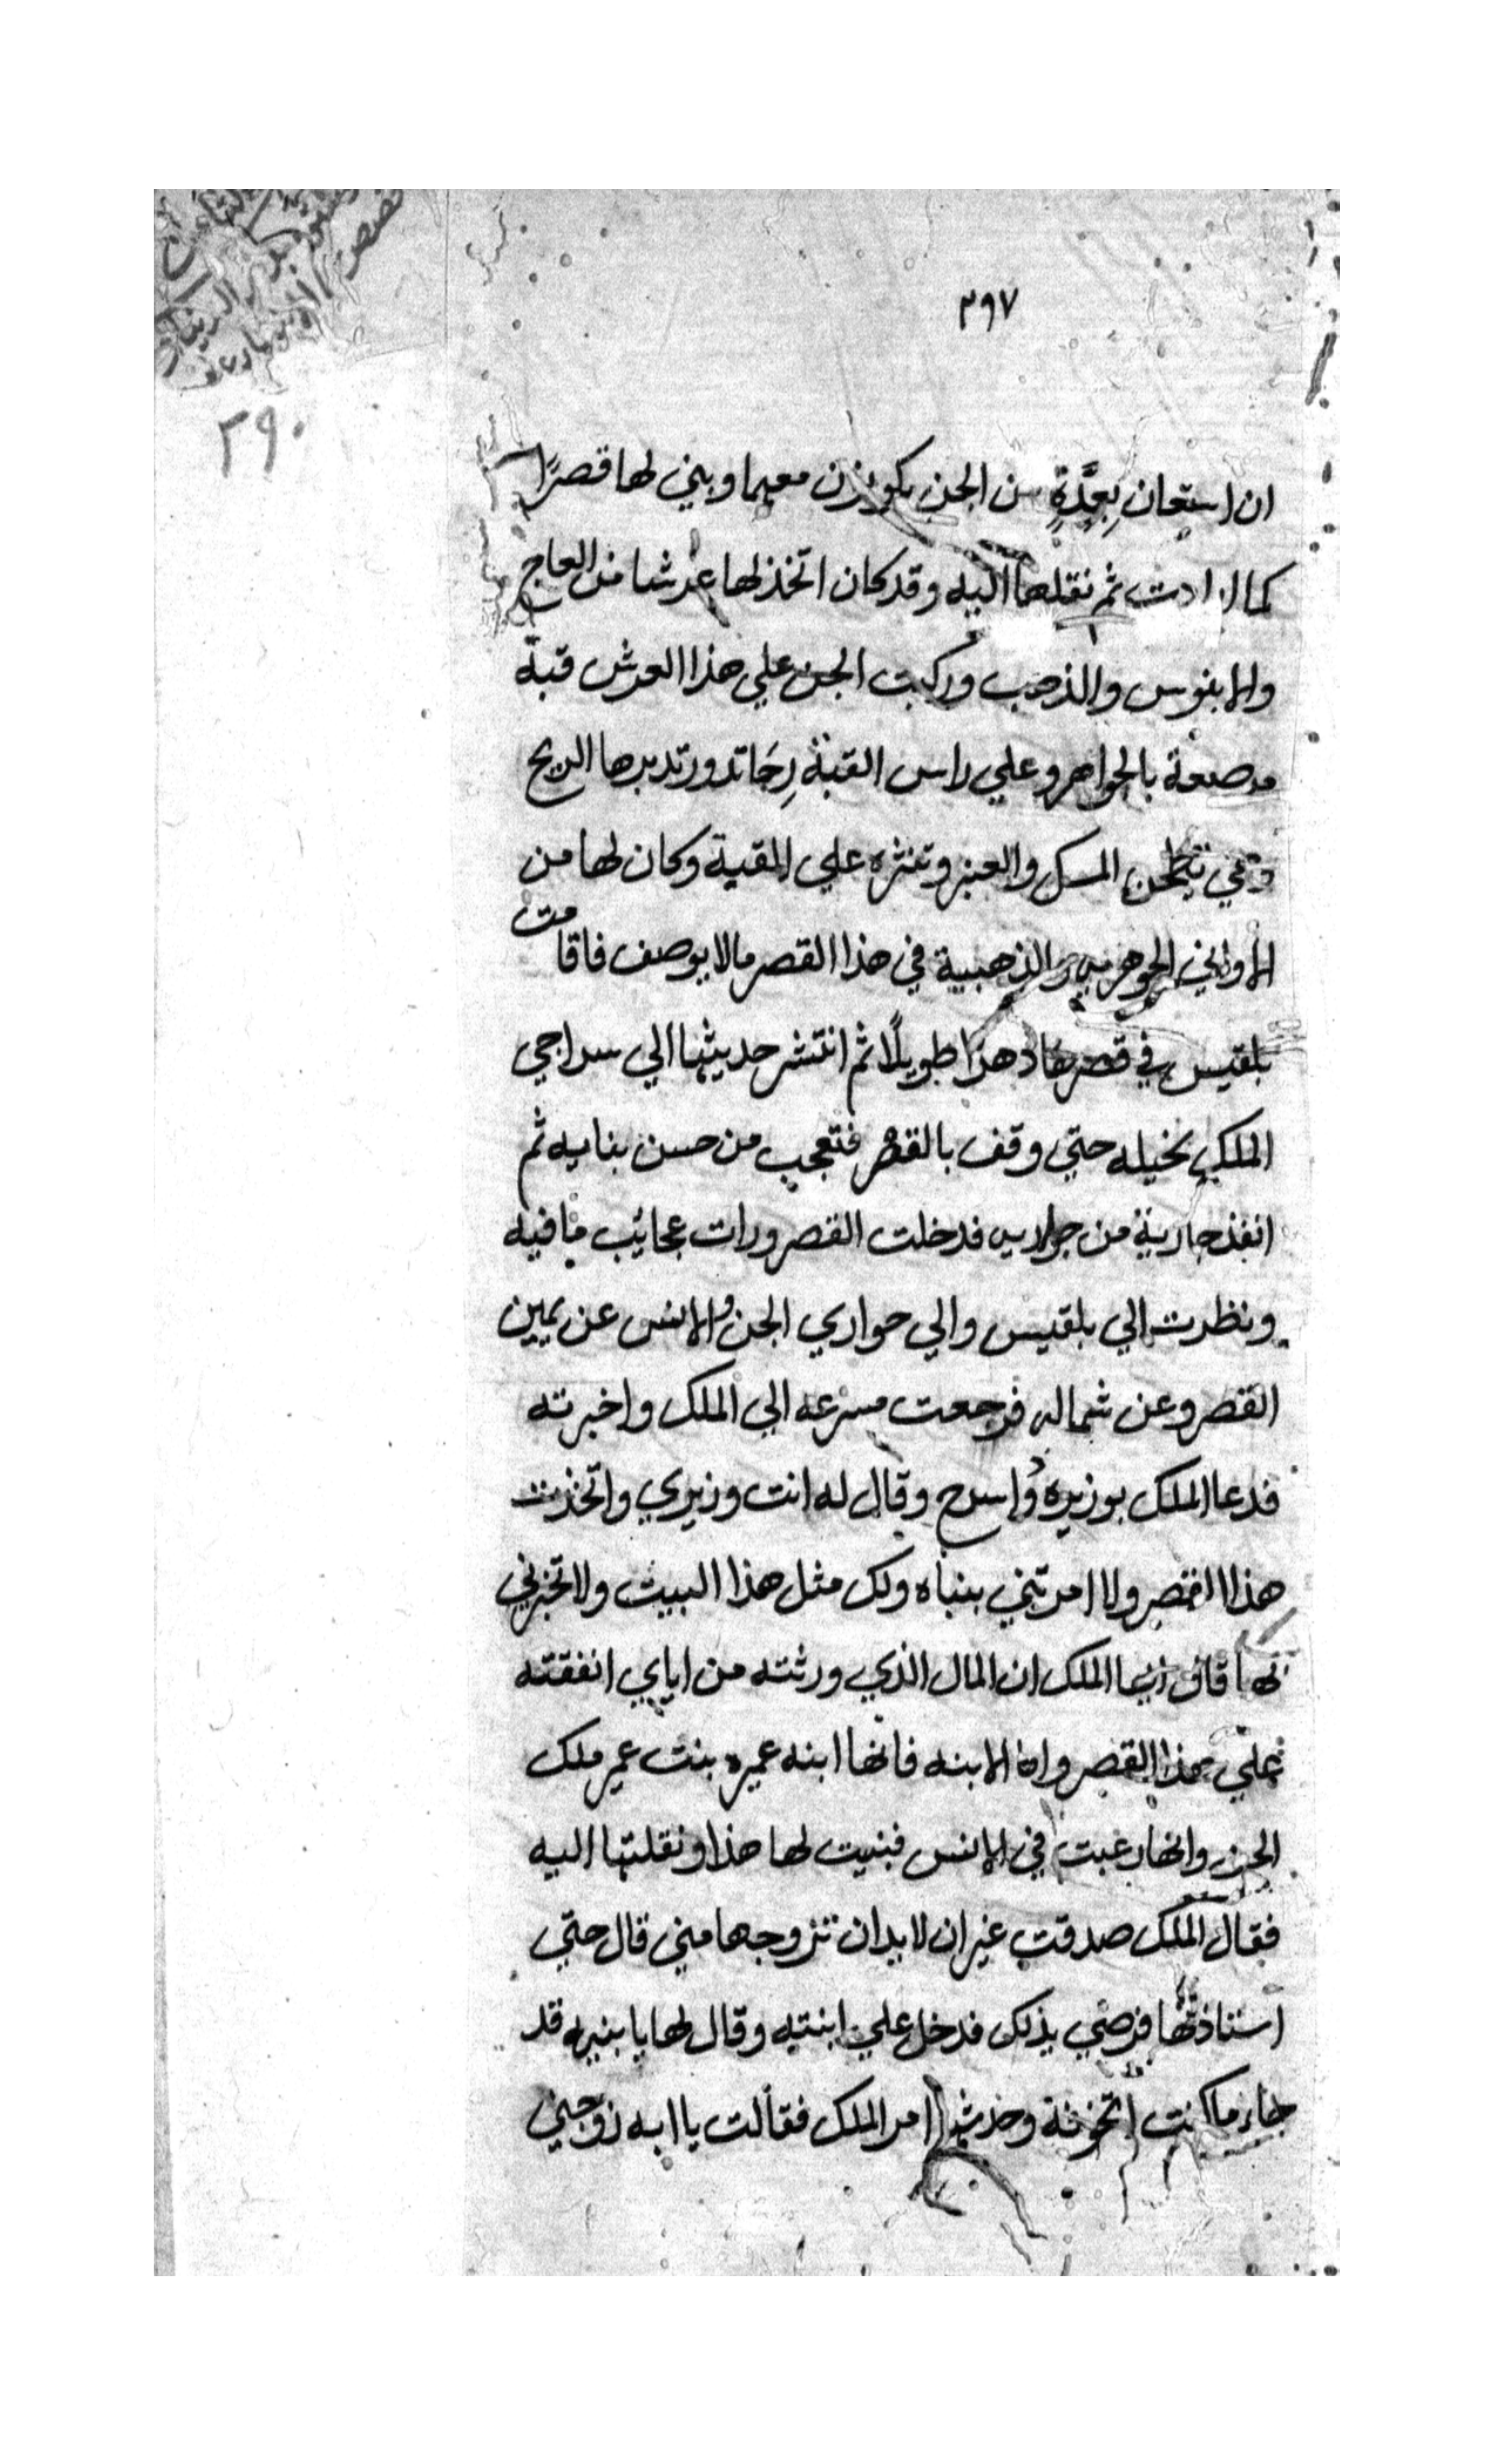 ٣٩٧
٢٩٠
ان استعان بعِدَّةٍ من الجن يكونون معهما وبني لها قصرًا
كما ارادت ثم نقلها اليه وقد كان اتخذ لها عرشا من العاج
والابنوس والذهب وركبت الجن علي هذا العرش قبة
مرصعة بالجواهر وعلي راس القبة رِحَا تدور تديرها الريح
وهي تطحن المسك والعنبر وتنثره علي القبة وكان لها من
الاواني الجوهرية والذهبية في هذا القصر مالا يوصف فاقامت
بلقيس في قصرها دهرا طويلًا ثم انتشر حديثها الي سراحي
الملك بخيله حتي وقف بالقصر فتعجب من حسن بنايه ثم
انفذ جارية من جواريه فدخلت القصر ورات عجائب ما فيه
ونظرت الي بلقيس والي حواري الجن والانس عن يمين
القصر وعن شماله فرجعت مسرعه الي الملك واخبرته
فدعا الملك بوزيره واسرح وقال له انت وزيري واتخذت
هذا القصر ولا امرتني ببناه ولك مثل هذا البيت ولا تخبرني
بها قال ايها الملك ان المال الذي ورثته من اباي انفقته
علي هذا القصر واما الابنه فانها ابنه عميره بنت عمير ملك
الجن وانها رغبت في الانس فبنيت لها هذا ونقلتها اليه
فقال الملك صدقت غير ان لا بد ان تزوجها مني قال حتي
استاذنها فرضي بذلك فدخل علي ابنته وقال لها يا بنيه قد
جاء ما كنت اتخوفه وحدثها امر الملك فقالت يا ابه زوجني